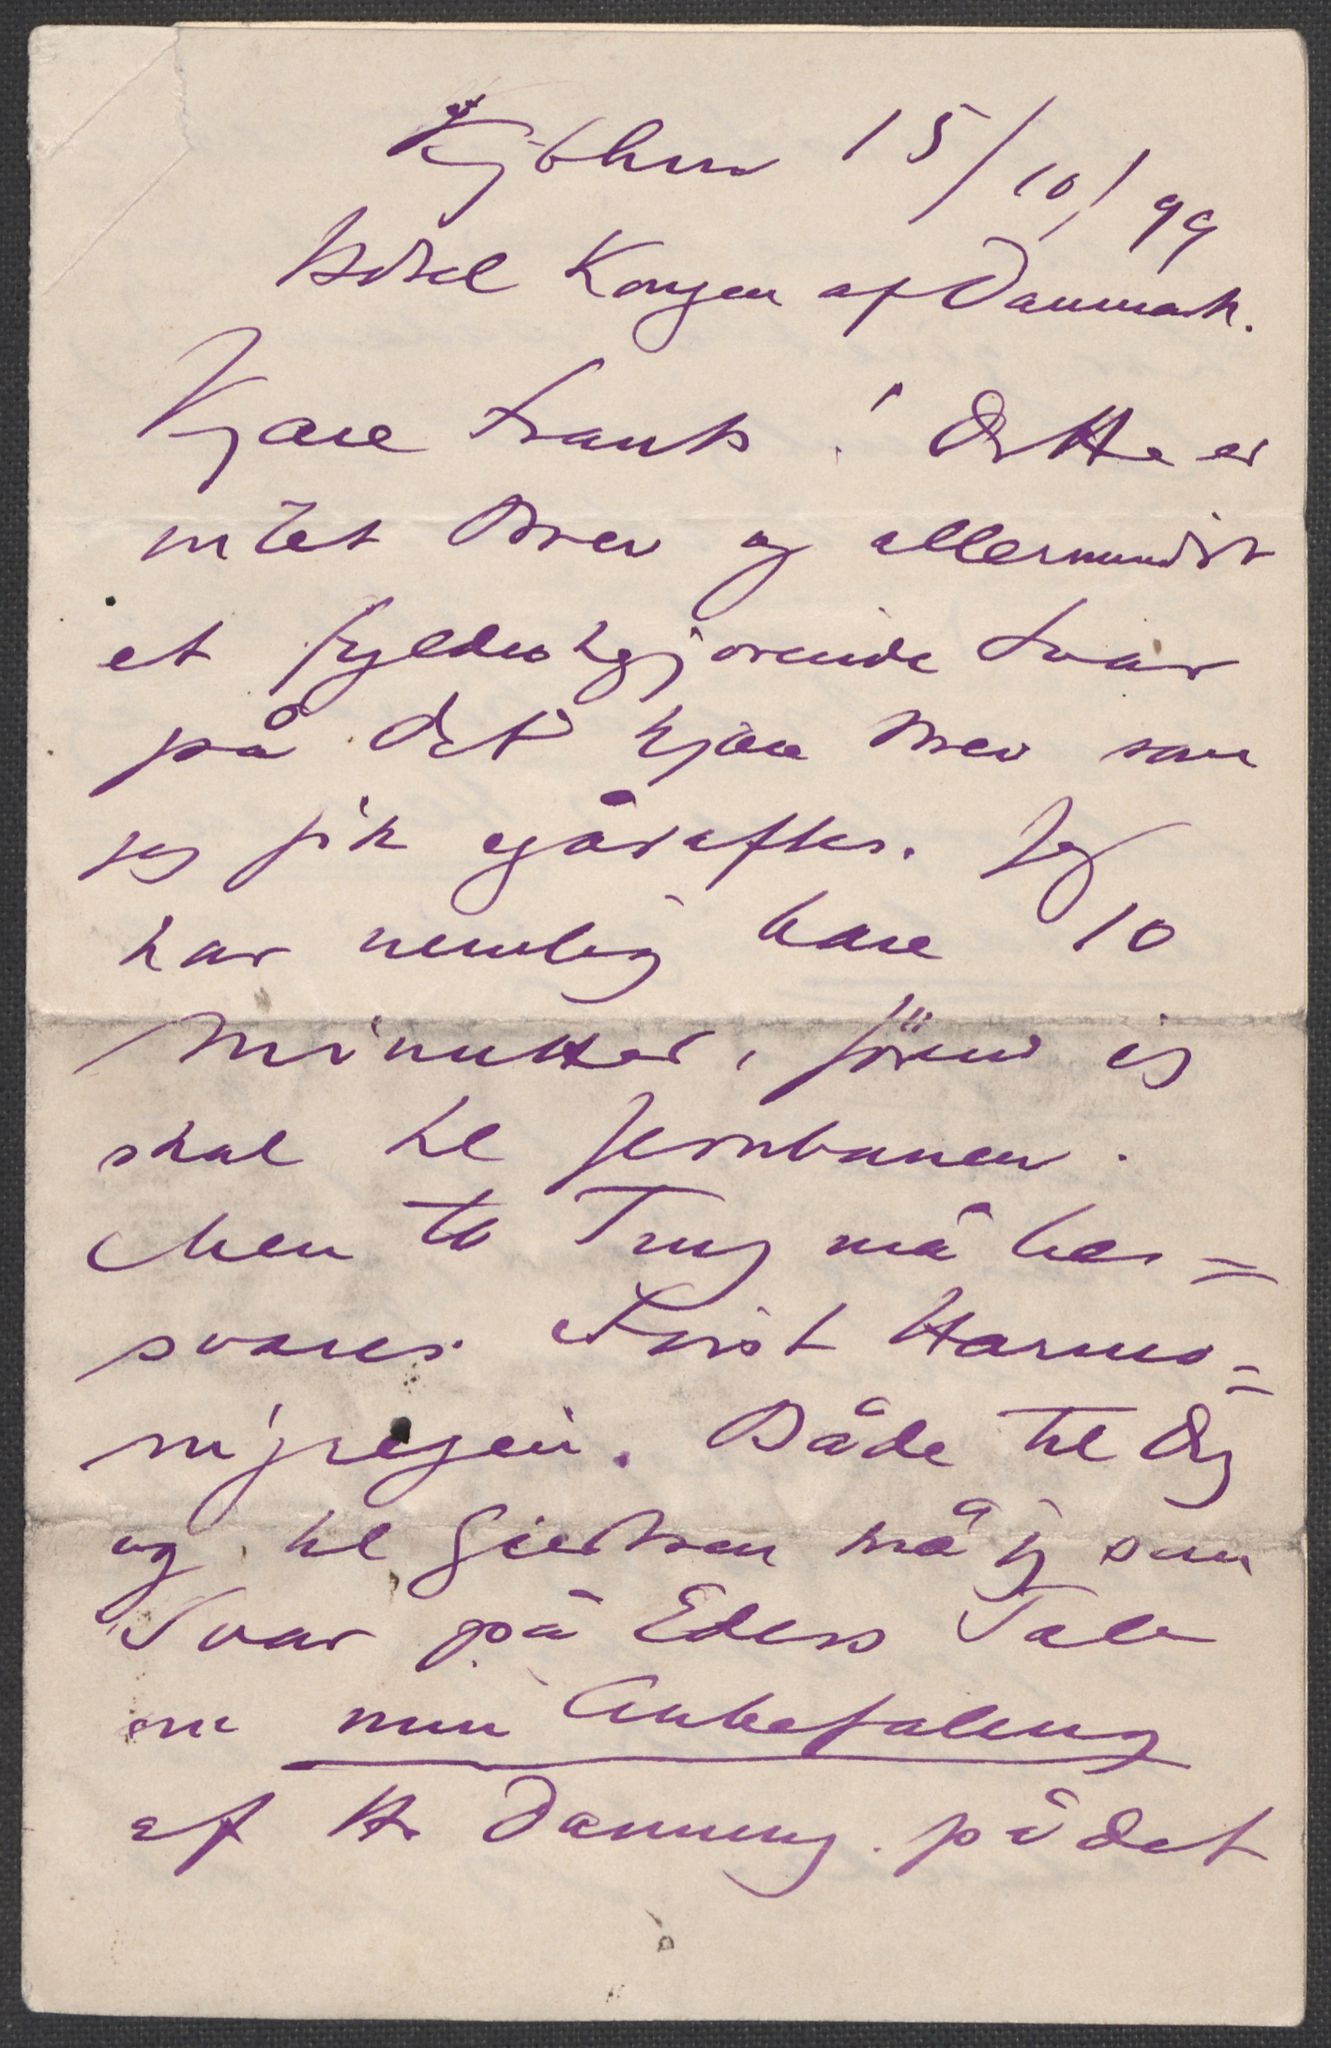 Kjøbhvn 15/10/99
Hotel Kongen af Danmark.
Kjære Frants! Dette er
intet Brev og allermindst
et fyldestgjørende Svar
på Dit kjære Brev som
jeg fik igåraftes. Jeg
har nemlig bare 10
Minutter, førend jeg
skal til Jernbanen.
Men to Ting må be=
svares. Først Harmo=
nijregeri. Både til Dig
og til Giertsen må jeg som
Svar på Eders Tale
om min Anbefaling
af Hr Danning på det